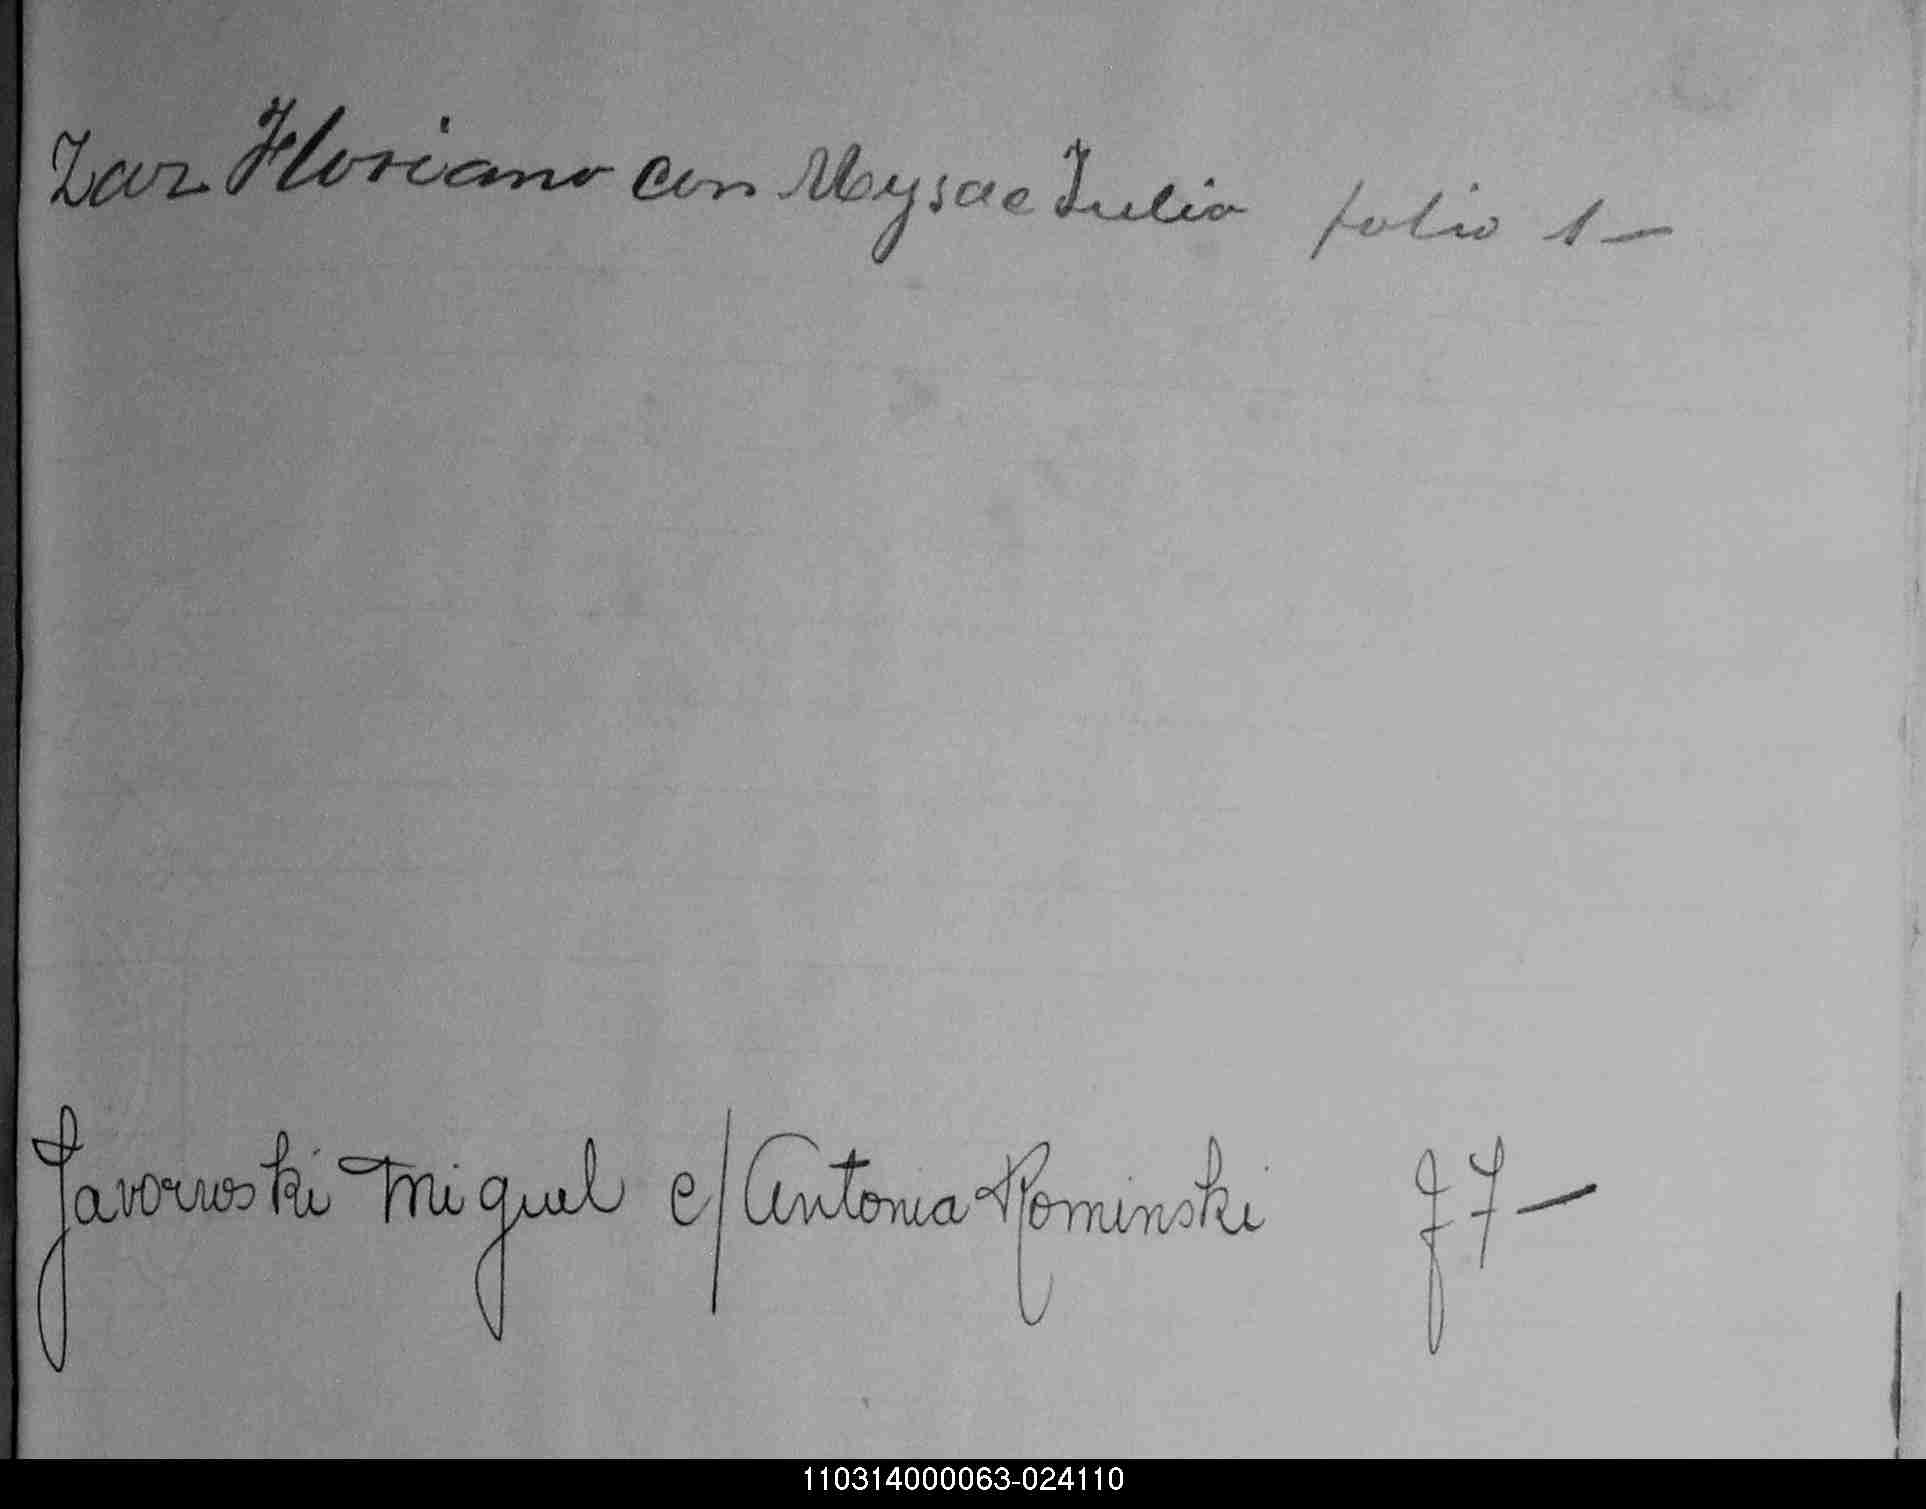 Zar Floriano con Mysae Julia folio 1-
Javorwski Miguel c/ Antonia Rominski f 7-
110314000063-024110